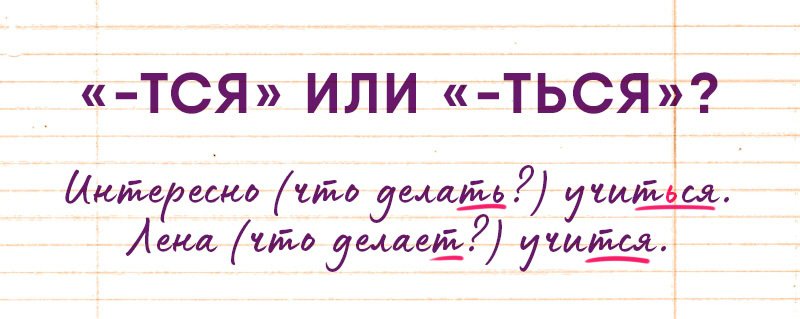 «-ТСЯ» ИЛИ «-ТЬСЯ»?
Интересно (что делать?) учиться.
Лена (что делает?) учится.